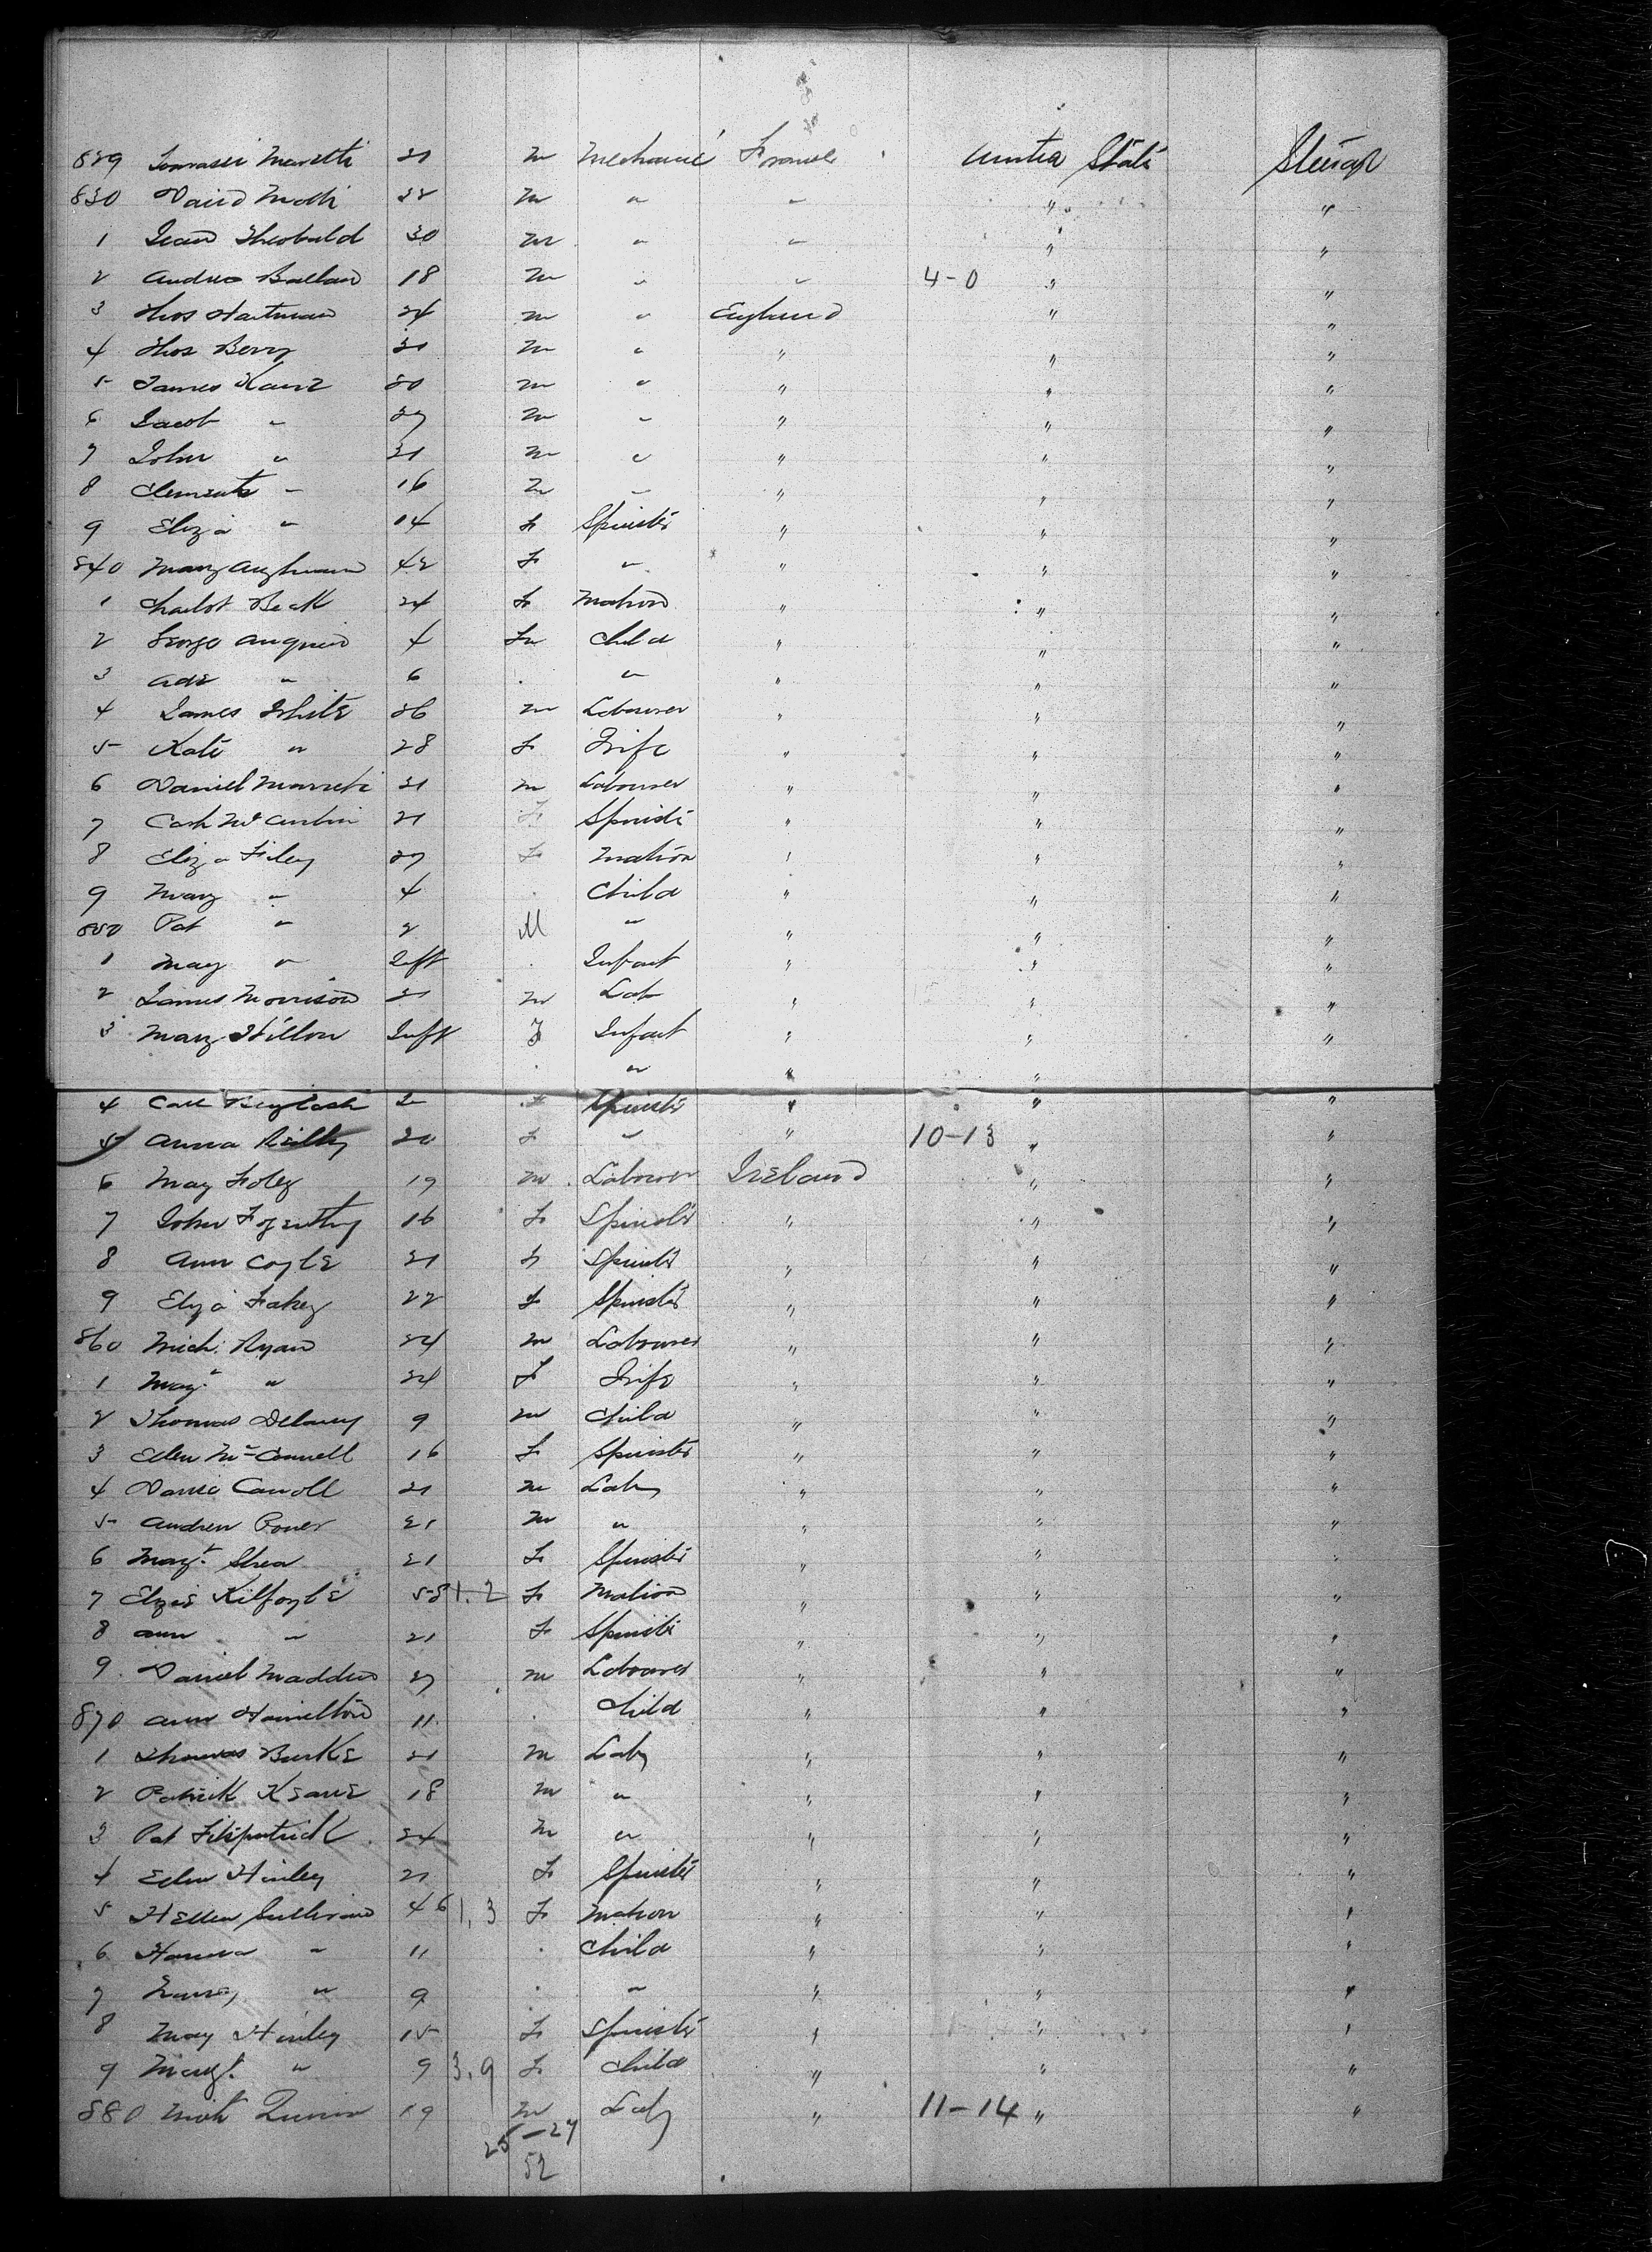 829 Maretti 21 m Mechanic France United States Steerage
830 David Motti 28 m " " " "
1 Jean Theobald 30 m " " " "
2 Andrew Ballan 18 m " " 4-0 " "
3 Thos Hartman 24 m " England " "
4 Thos Berry 21 m " " " "
5 James Kanz 20 m " " " "
6 Jacob " 27 m " " " "
7 John " 21 m " " " "
8 Clements " 16 m " " " "
9 Eliza " 14 F Spinster " " "
840 Mary 42 F " " " "
1 Charlot Beck 24 F Matron " " "
2 George Anquin 4 Child " " "
3 Ade " 6 " " " "
4 James White 26 m Labourer " " "
5 Kate " 28 F Wife " " "
6 Daniel 21 m Labourer " " "
7 Cath 21 F Spinster " " "
8 Eliza Filey 27 F Matron " " "
9 Mary " 4 Child " " "
850 Pat " 2 M " " " "
1 May " Inft Infant " " "
2 James Morrison 21 m Lab " " "
3 Mary Hillon Inft F Infant " " "
" " "
4 F Spinster " " "
5 Anna Reilly 20 F " " 10-13 " "
6 May Foley 19 m Labourer Ireland " "
7 John 16 F Spinster " " "
8 Ann Coyle 21 F Spinster " " "
9 Eliza Fahey 22 F Spinster " " "
860 Mich. Ryan 24 m Labourer " " "
1 " 24 F Wife " " "
2 Thomas Delaney 9 m Child " " "
3 Ellen McConnell 16 F Spinster " " "
4 Carroll 21 m Lab " " "
5 Andrew Power 21 m " " " "
6 Margt. Shea 21 F Spinster " " "
7 Kilfoyle 58 1.2 F Matron " " "
8 Ann " 21 F Spinster " " "
9. Daniel Madden 27 m Labourer " " "
870 Ann Hamilton 11. Child " " "
1 Thomas Burke 21 m Lab " " "
2 Patrick Keane 18 m " " " "
3 Pat Fitzpatrick 24 m " " " "
4 Ellen Hinley 21 F Spinster " " "
5 Hellen Sullivan 46 1,3 F Matron " " "
6 Hanna " 11 Child " " "
7 " 9 " " " "
8 May Hinley 15 F Spinster " " "
9 Margt. " 9 3.9 F Child " " "
880 Quinn 19 m Lab " 11-14 " "
25-27
52